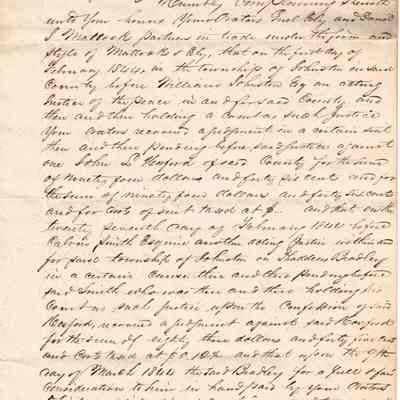 Humbly Complaining Sheweth
unto Your honors Your Orators Ely and
J Mattock partners in trade under the firm and
style of Mattock & Ely, that on the first day of
February 1844, in the township of Johnston in said
County before William Johnston Esq an acting
Justice of the peace in and for said County and
then and there holding a court as such Justice
Your Orators recovered a judgment in a certain suit
then and there pending before said Justice against
one John L Hosford of said County for the sum
of ninety four dollars and forty six cents and for
the sum of ninety four dollars and forty six cents
and for costs of suit taxed at $ and that on the
twenty seventh day of February 1844 before
Calvin Smith Esquire another acting Justice within and
for said township of Johnston one Thaddeus Bradley
in a certain cause then and there pending before
said Smith who was then and there holding his
Court as such justice upon the Confession of said
Hosford, recovered a judgment against said Hosford
for the sum of eighty three dollars and forty five cts
and Costs taxed at and that upon the 9th
day of March 1844 the said Bradley for a full & fair
consideration to him in hand paid by your Orators